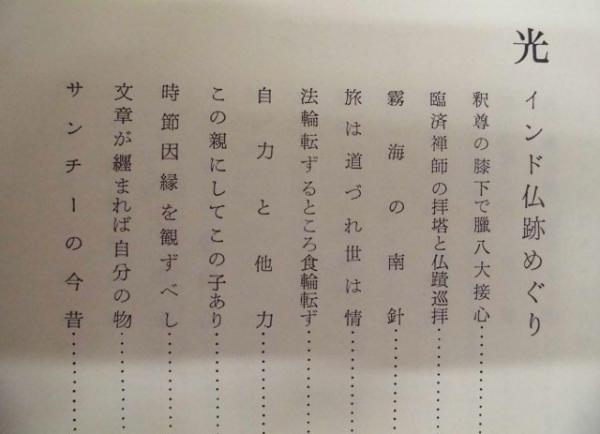 光 インド仏跡めぐり
釈尊の膝下で臘八大接心…………
臨済禅師の拝塔と仏蹟巡拝…………
霧海の南針…………
旅は道づれ世は情…………
法輪転ずるところ食輪転ず…………
自力と他力…………
この親にしてこの子あり…………
時節因縁を観ずべし…………
文章が纒まれば自分の物…………
サンチーの今昔…………